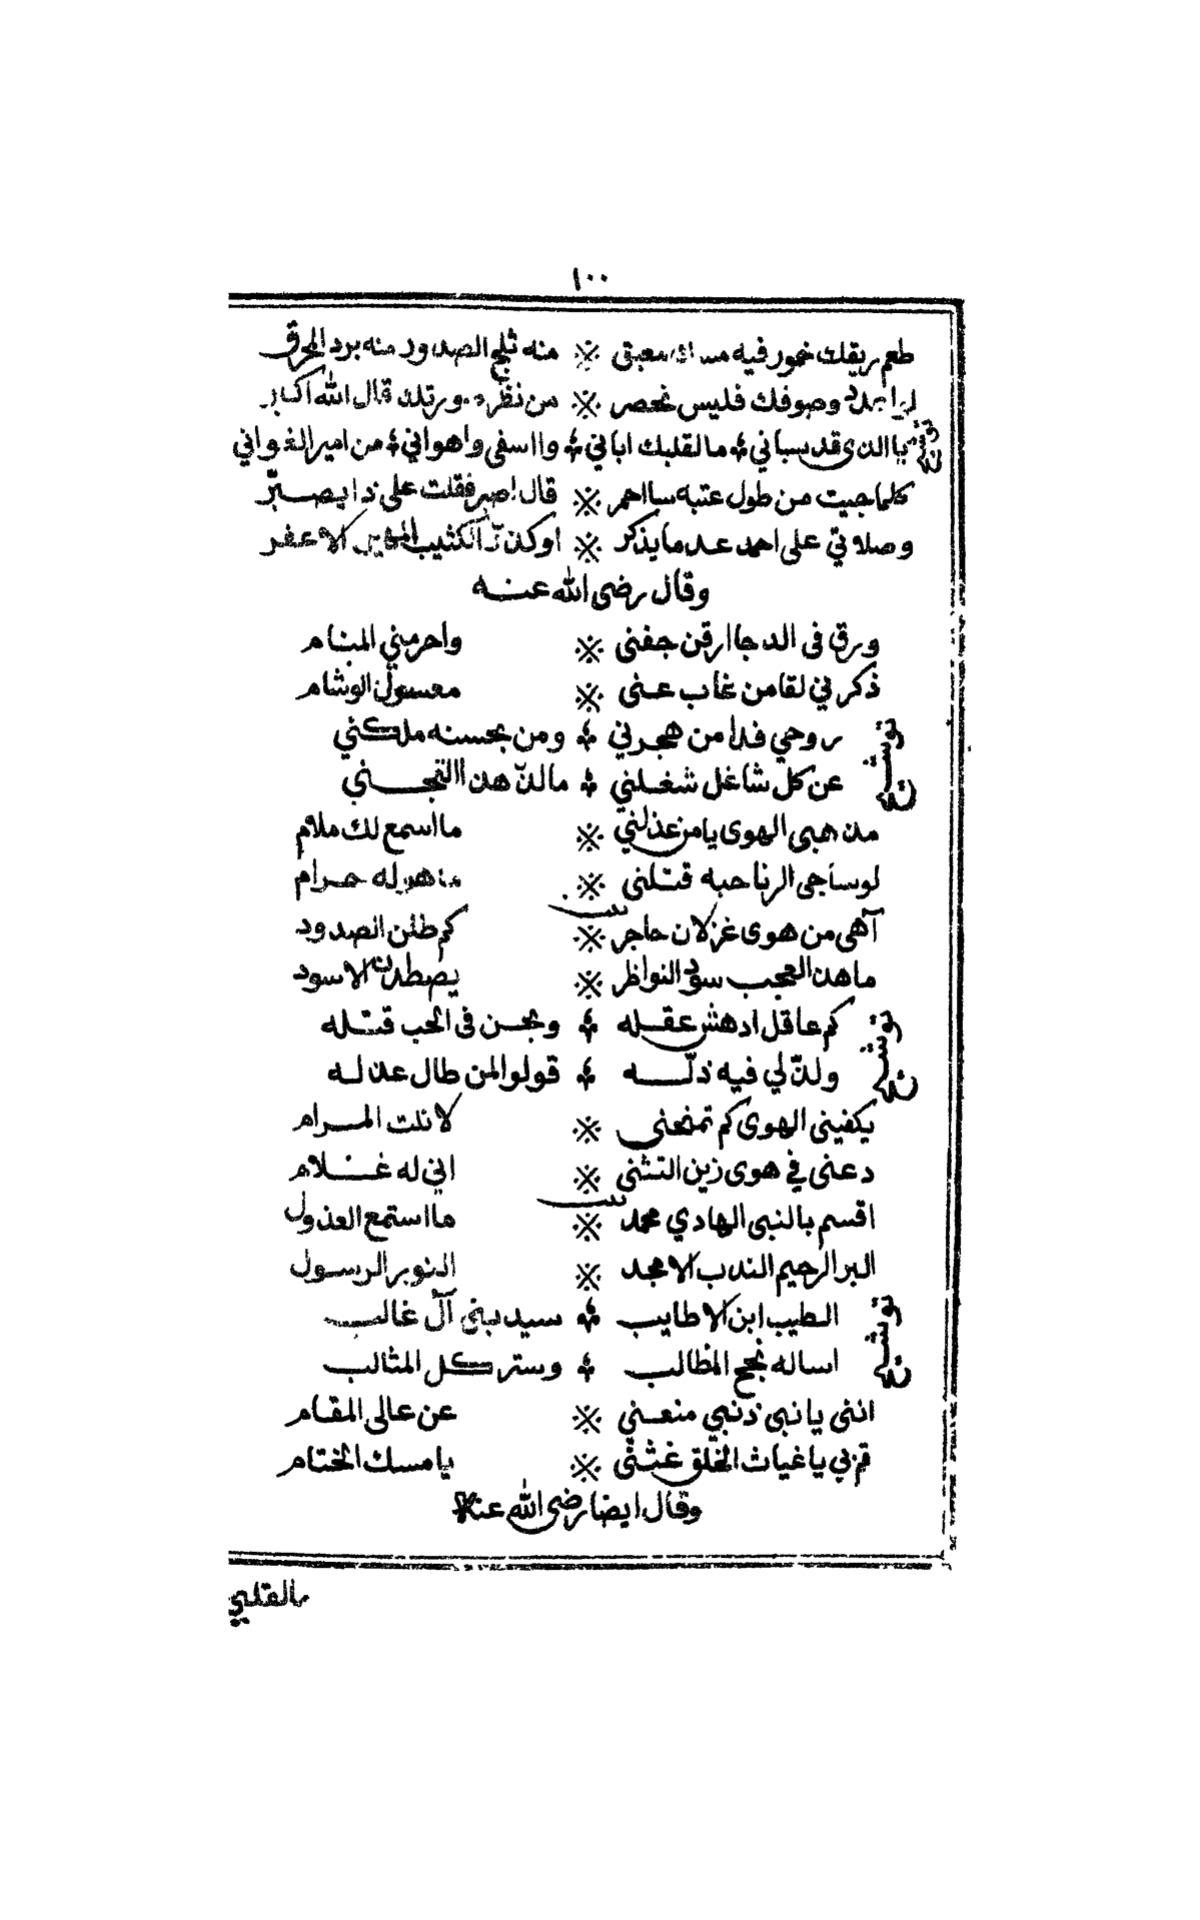 ١٠٠
طعم ريقك خمور فيه مسك معبق ※ منه ثلج الصدور منه برد الحرق
وصوفك فليس نحصر ※ من نظره ورتك قال الله اكبر
توشيح يا الذى قد سباني ؞ ما لقلبك اباني ؞ وا اسفى واهواني ؞ من امير الغواني
كلما جيت من طول عتبه سا احمر ※ قال اصبر فقلت على ذا يصبّر
وصلاتي على احمد عد ما يذكر ※ الكثيب الاعفر
وقال رضى الله عنه
ورق فى الدجا ارقن جفنى ※ واحرمني المنام
ذكرني لقا من غاب عنى ※ معسول الوشام
توشيح روحي فدا من هجرني ؞ ومن بحسنه ملكني
عن كل شاغل شغلني ؞ ما لذّ هذا التجني
مذهبى الهوى يا من عذلني ※ ما اسمع لك ملام
لو ساجى الرنا حبه قتلنى ※ ما هو له حرام
بيت
آهى من هوى غزلان حاجر ※ كم طلن الصدود
ما هذا العجب سود النواظر ※ يصطدن الاسود
توشيح كم عاقل ادهش عقله ؞ وبحسن فى الحب قتله
ولذّ لي فيه ذلّه ؞ قولوا لمن طال عذله
يكفينى الهوى كم تمنعنى ※ لا نلت المرام
دعنى في هوى زين التثنى ※ اني له غلام
بيت
اقسم بالنبى الهادي محمد ※ ما استمع العذول
البر الرحيم الندب الامجد ※ النور الرسول
توشيح الطيب ابن الاطايب ؞ سيد بنى آل غالب
اساله نجح المطالب ؞ وستر كل المثالب
اننى يا نبى ذنبي منعني ※ عن عالى المقام
قم بي يا غياث الخلق غثنى ※ يا مسك الختام
وقال ايضا رضى الله عنه
بالقلبي